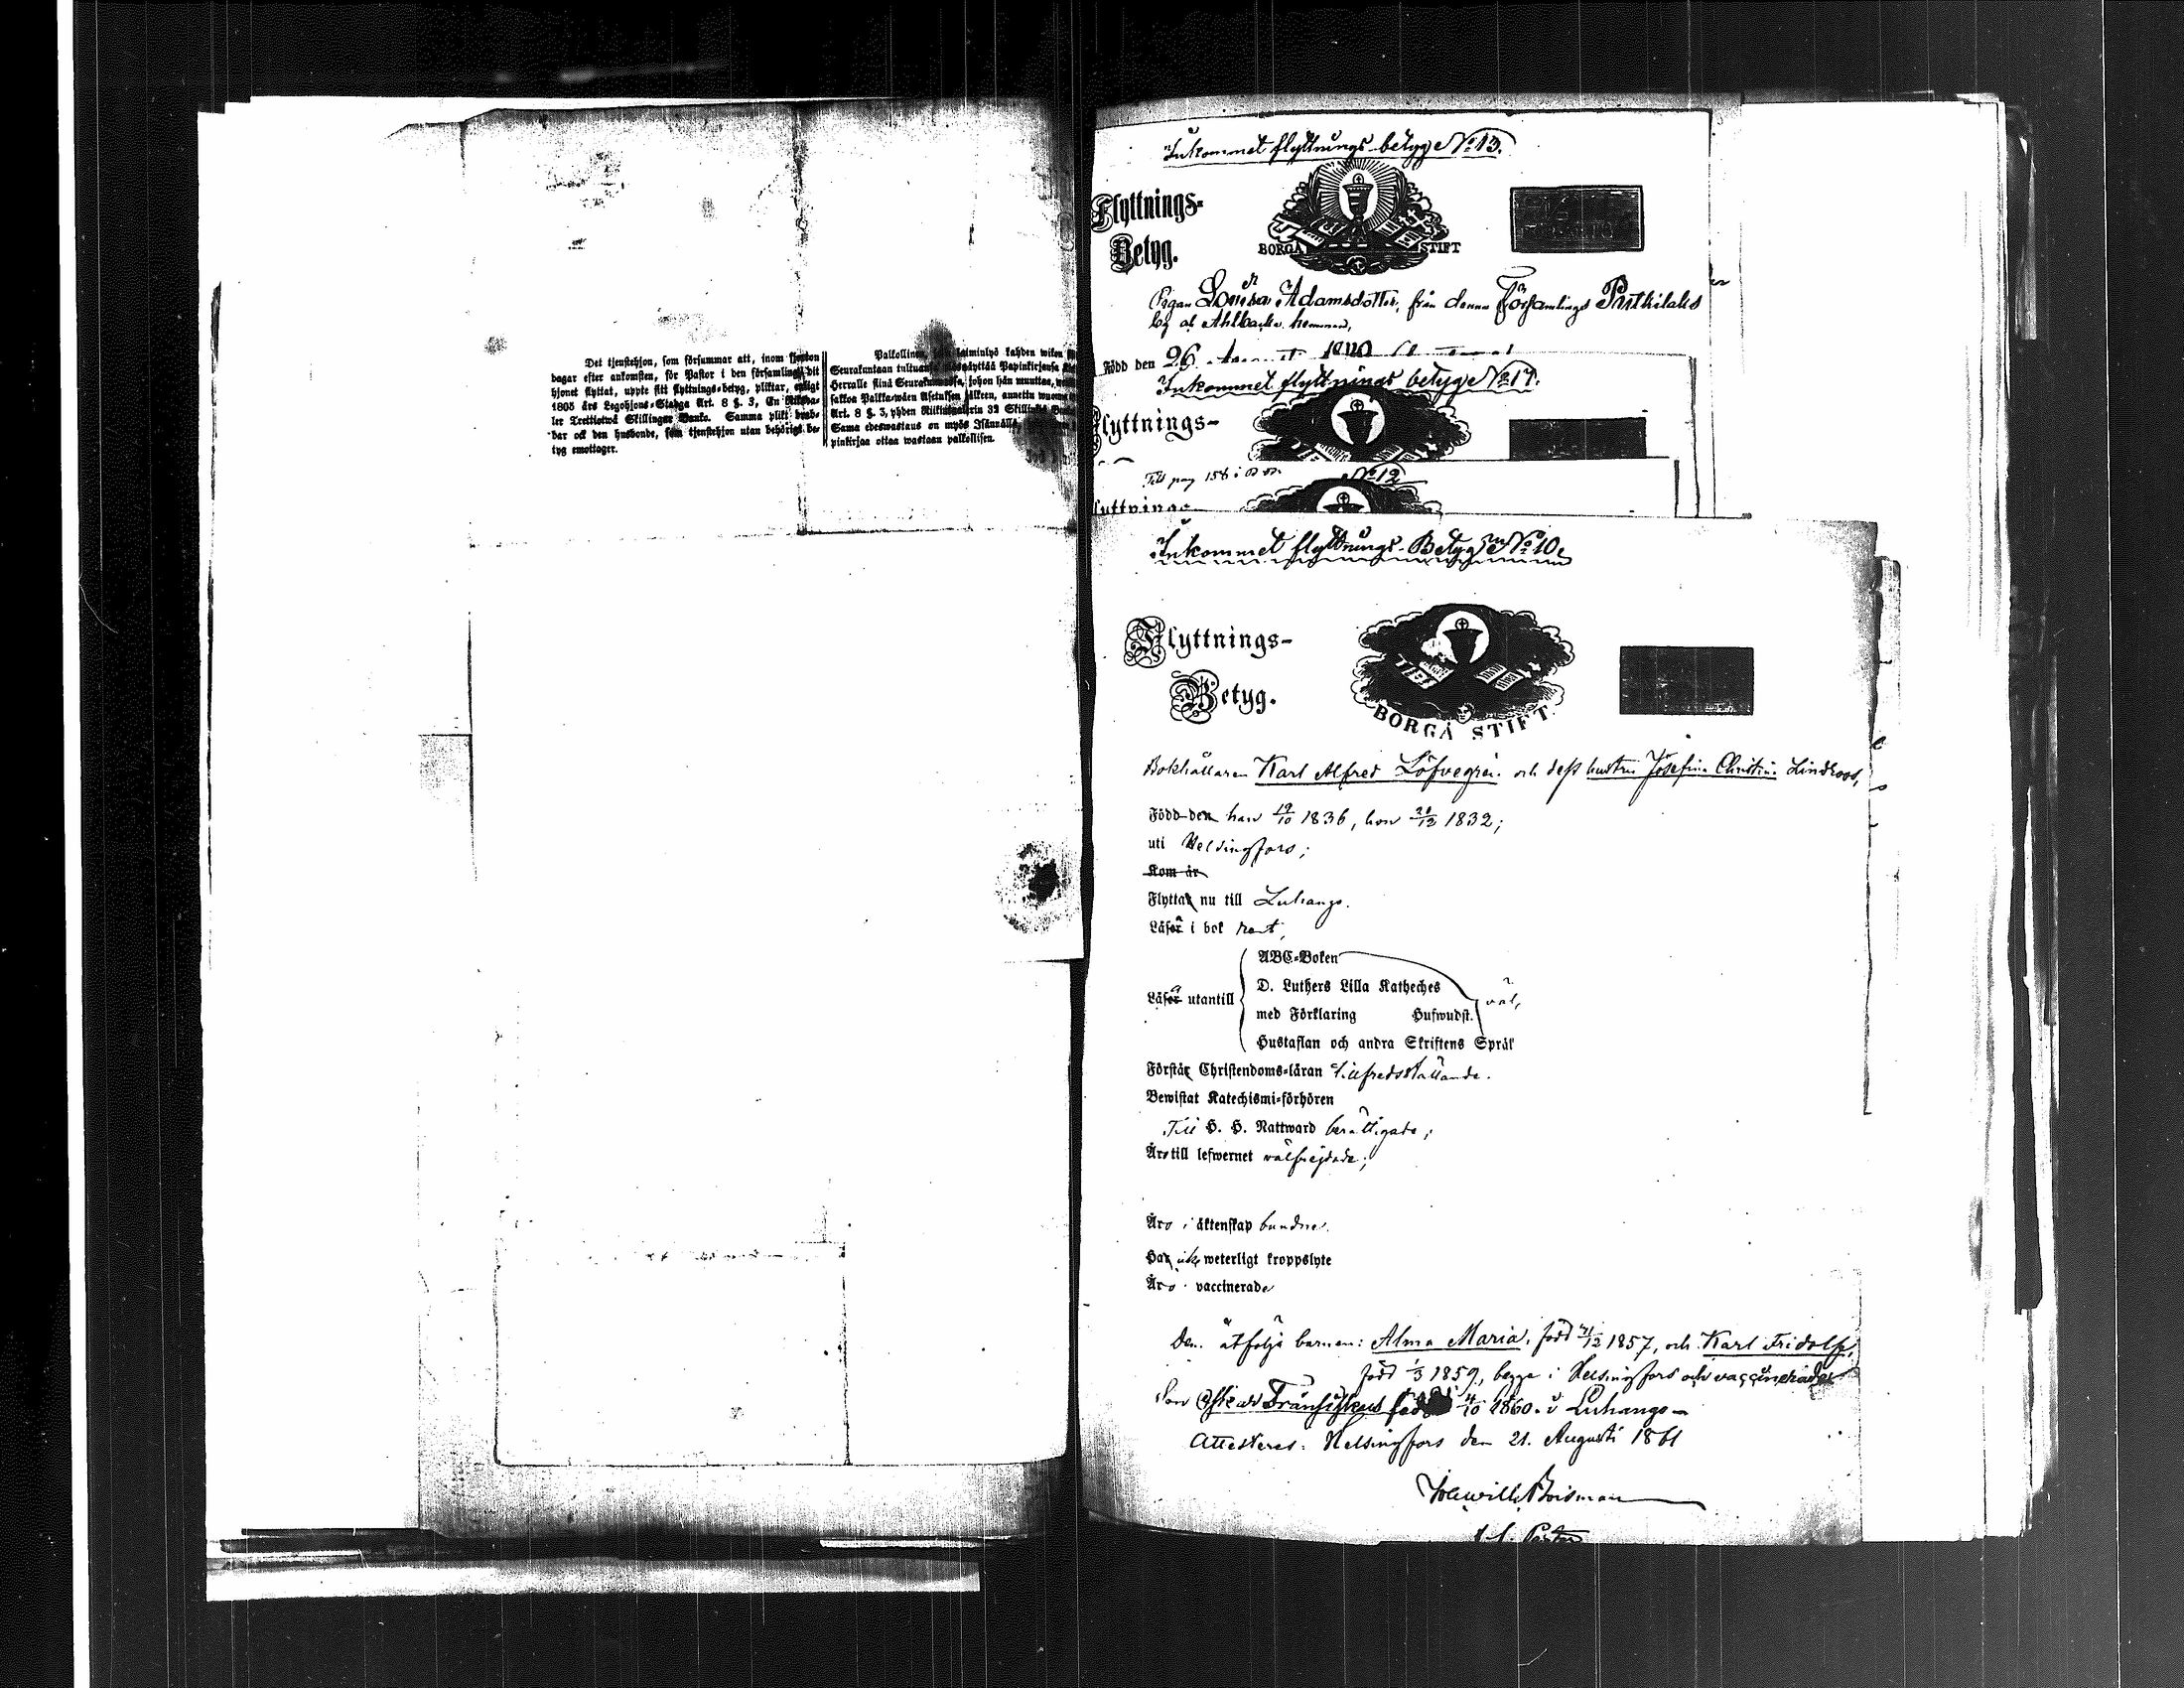 Det tjenstehjon, som försummar att, inom fjorton
dagar efter ankomsten, för Pastor i den församling dit
hjonet flyttat, uppte sitt flyttnings-betyg, pliktar, enligt
1805 års Legohjons-Stadga Art. 8 §. 3, En Riksda-
ler Trettiotwå Skillingar Banko. Samma plikt drab-
bar ock den husbonde, som tjenstehjon utan behörigt be-
tyg emottager.
Palkollinen, laiminlyö kahden wiikon
Seurakuntaan tultuansa näyttää Papinkirjansa
Herralle siinä Seurakunnassa, johon hän muuttaa,
sakkoa Palkka-wäen Asetuksen jälkeen, annettu wuonna
Art. 8 §. 3, yhden Riikintaalerin 32 Skillinkiä
Sama edeswastaus on myös Isännällä,
pinkirjaa ottaa wastaan palkollisen.
Inkommet flyttnings-betyg No 13.
Flyttnings-
Betyg.
BORGÅ STIFT
Pigan Lovisa Adamsdotter, från denna Församlings
by o. Ahlbacka hemman,
Född den 26
Inkommet flyttnings betyg No 17.
Flyttnings-
Till pag 158 i
No 12
Flyttnings-
Inkommet flyttnings-Betyg No 10.
Flyttnings-
Betyg.
BORGÅ STIFT.
Bokhållaren Karl Alfred Löfvegren och dess hustru Josefina Christina Lindroos,
Född den han 19/10 1836, hon 20/12 1832;
uti Helsingfors;
Kom år
Flytta nu till Luhango.
Läsa i bok rent,
Läsa utantill
ABC-Boken
D. Luthers Lilla Katheches
med Förklaring Hufwudst.
Hustaflan och andra Skriftens Språk
väl,
Förstå Christendoms-läran tillfredsställande.
Bewistat Katechismi-förhören
Till H. H. Nattward berättigade;
Äro till lefwernet välfrejdade;
Äro i äktenskap bundne.
Ha icke weterligt kroppslyte
Äro vaccinerade
Dem åtfölja barnen: Alma Maria, född 21/12 1857, och Karl Fridolf,
född 1/3 1859, begge i Helsingfors och vaccinerade
Son Oskar Fransiskus född 4/10 1860 i Luhango
Attesteras: Helsingfors den 21. Augusti 1861